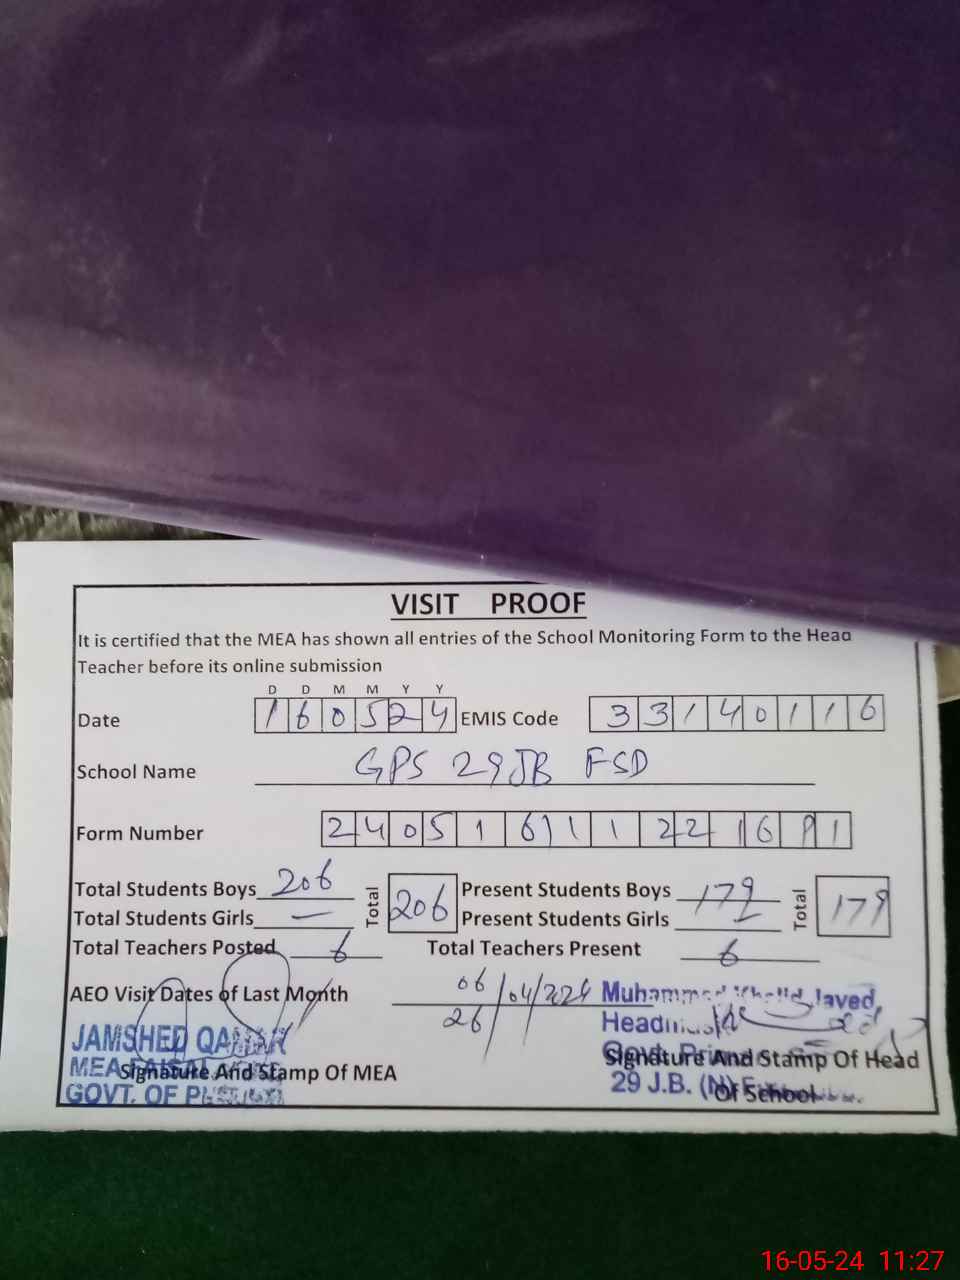 VISIT PROOF
It is certified that the MEA has shown all entries of the School Monitoring Form to the Head
Teacher before its online submission
D D M M Y Y
Date 160524 EMIS Code 33140116
School Name GPS 29JB FSD
Form Number 24051611122161
Total Students Boys 206 Total 206 Present Students Boys 179 Total 179
Total Students Girls — Present Students Girls —
Total Teachers Posted 6 Total Teachers Present 6
AEO Visit Dates of Last Month 06 26 /04/2024
JAMSHED QAMAR
MEA
GOVT. OF
Signature And Stamp Of MEA
Muhammad Khalid Javed
Headmaster
Govt.
29 J.B. (N)
Signature And Stamp Of Head
Of School
16-05-24 11:27